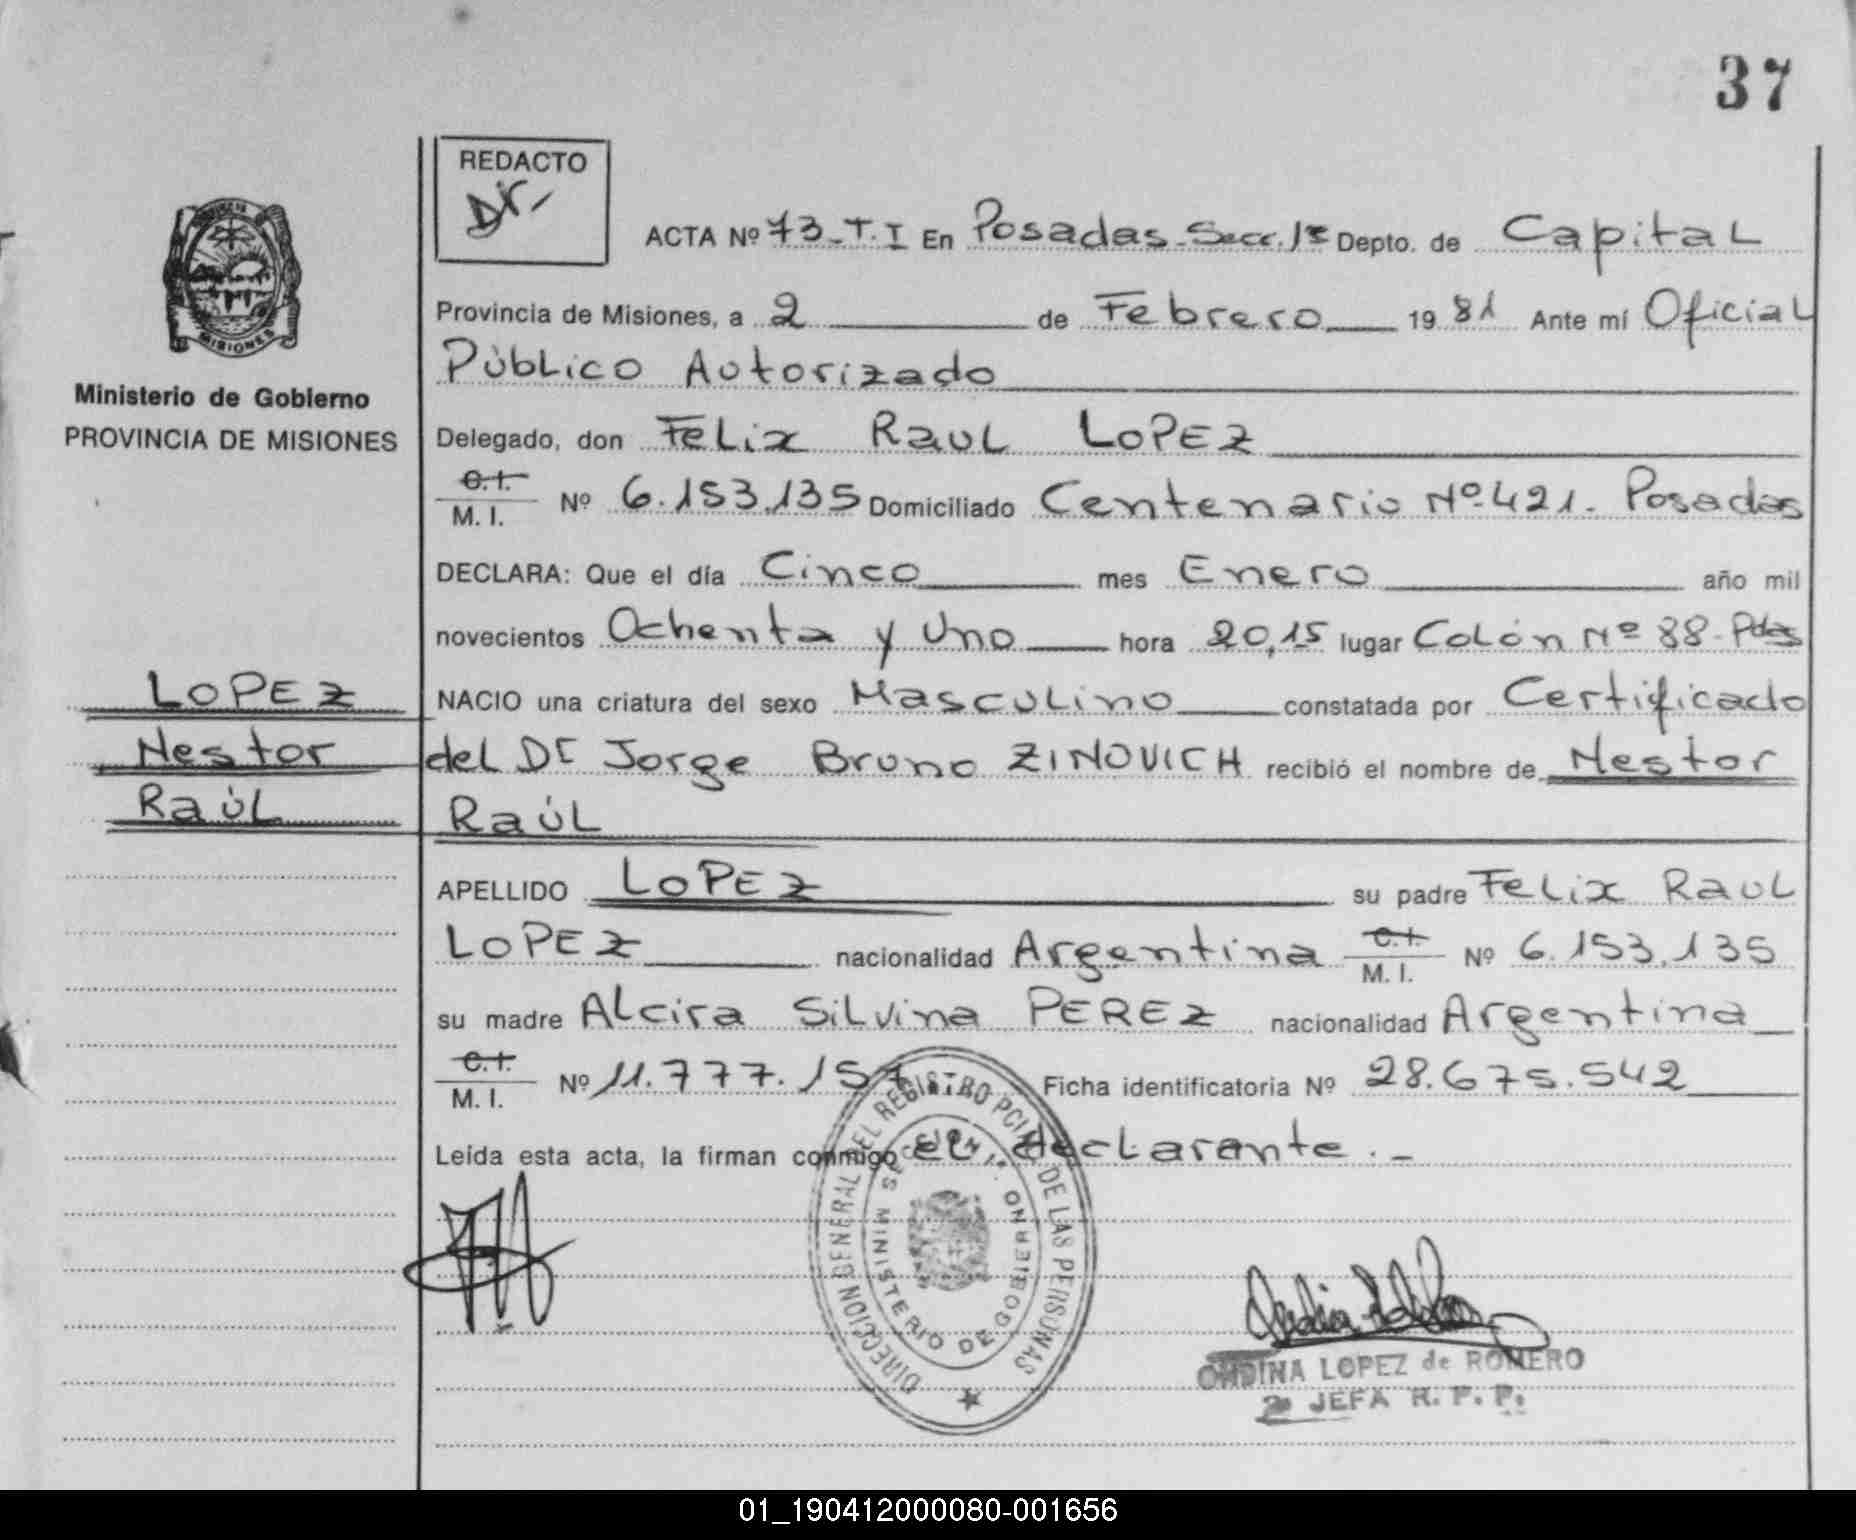 37
REDACTO
ACTA Nº 73-T.I En Posadas-Secc. 1ª Depto. de Capital
Provincia de Misiones, a 2 de Febrero 1981 Ante mí Oficial
Público Autorizado
Ministerio de Gobierno
PROVINCIA DE MISIONES
Delegado, don Felix Raul LOPEZ
C.I. M.I. Nº 6.153.135 Domiciliado Centenario Nº 421. Posadas
DECLARA: Que el día Cinco mes Enero año mil
novecientos Ochenta y Uno hora 20,15 lugar Colón Nº 88-Pdas
NACIO una criatura del sexo Masculino constatada por Certificado
del Dr Jorge Bruno ZINOVICH recibió el nombre de Nestor
Raúl
LOPEZ
Nestor
Raúl
APELLIDO LOPEZ su padre Felix Raul
LOPEZ nacionalidad Argentina C.I. M.I. Nº 6.153.135
su madre Alcira Silvina PEREZ nacionalidad Argentina
C.I. M.I. Nº 11.777.157 Ficha identificatoria Nº 28.675.542
Leída esta acta, la firman conmigo el declarante.-
DIRECCION GENERAL DEL REGISTRO PCIAL. DE LAS PERSONAS
SECCION 1ª
MINISTERIO DE GOBIERNO
ONDINA LOPEZ de ROMERO
JEFA R. P. P.
MISIONES
01_190412000080-001656